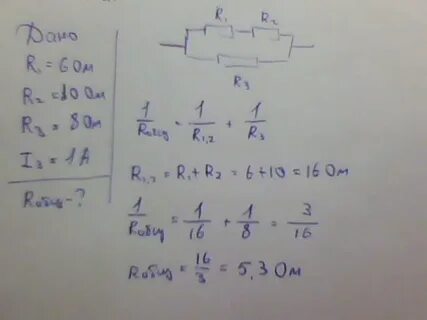 Дано
R₁ = 6 Ом
R₂ = 10 Ом
R₃ = 8 Ом
I₃ = 1 А
Rобщ - ?
R₁ R₂
R₃
1/Rобщ = 1/R₁,₂ + 1/R₃
R₁,₂ = R₁ + R₂ = 6 + 10 = 16 Ом
1/Rобщ = 1/16 + 1/8 = 3/16
Rобщ = 16/3 = 5,3 Ом